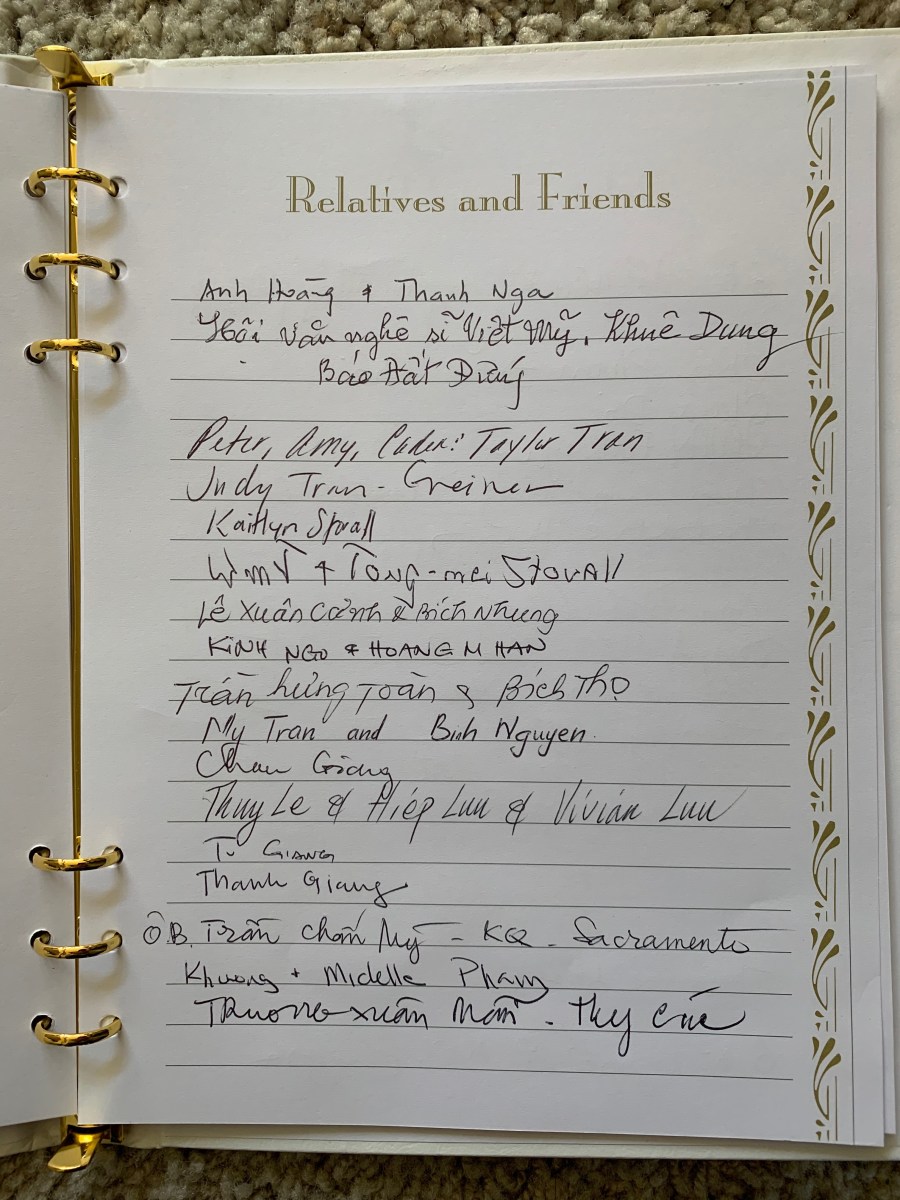 Relatives and Friends
Anh Hoàng & Thanh Nga
Hội Văn nghệ sĩ Việt Mỹ, Khuê Dung
Báo Đất Đứng
Peter, Amy, Taylor Tran
Judy Tran-Greiner
Kaitlyn Stovall
+ Tòng-mei Stovall
Lê Xuân Cảnh & Bích Nhung
KINH NGO & HOANG M HAN
Trần hưng Toàn & Bích Thọ
My Tran and Binh Nguyen
Chau Giang
Thuy Le & Hiép Luu & Vivian Luu
Tu GIANG
Thanh Giang
Ô.B. Trần Chấn Mỹ - KQ - Sacramento
Khuong + Michelle Pham
Truong xuân Mẫn - Thy Cúc